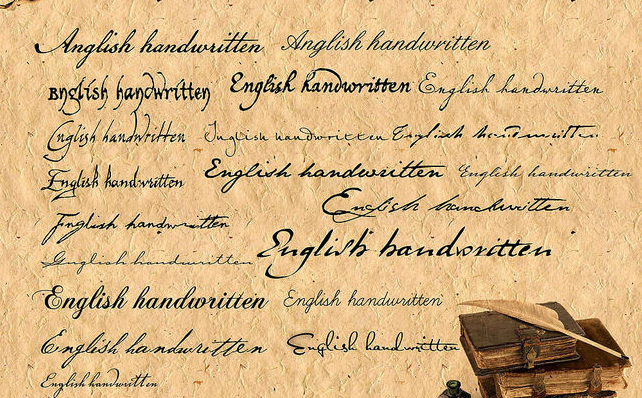 Anglish handwritten Anglish handwritten
English handwritten English handwritten English handwritten
English handwritten English handwritten English handwritten
English handwritten English handwritten English handwritten
English handwritten
English handwritten
English handwritten
English handwritten
English handwritten English handwritten
English handwritten English handwritten
English handwritten